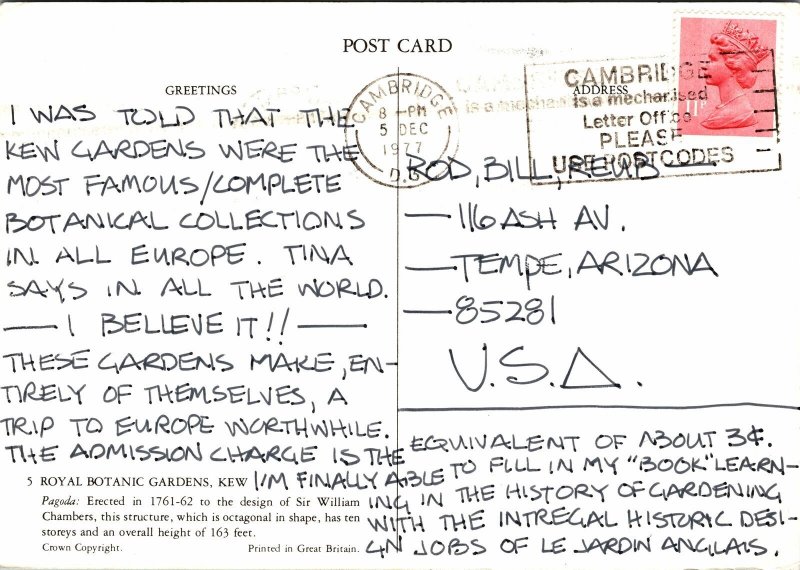 POST CARD
GREETINGS
ADDRESS
CAMBRIDGE
8 - PM
5 DEC
1977
CAMBRIDGE
is a mechanised
Letter Office
PLEASE
USE POSTCODES
I WAS TOLD THAT THE
KEW GARDENS WERE THE
MOST FAMOUS/COMPLETE
BOTANICAL COLLECTIONS
IN ALL EUROPE. TINA
SAYS IN ALL THE WORLD.
— I BELLEVE IT!! —
THESE GARDENS MAKE, EN-
TIRELY OF THEMSELVES, A
TRIP TO EUROPE WORTHWHILE.
THE ADMISSION CHARGE IS THE EQUIVALENT OF ABOUT 3¢.
I'M FINALLY ABLE TO FILL IN MY "BOOK" LEARN-
ING IN THE HISTORY OF GARDENING
WITH THE INTREGAL HISTORIC DESI-
GN JOBS OF LE JARDIN ANGLAIS.
ROD, BILL, REUB —
— 116 ASH AV.
— TEMPE, ARIZONA
— 85281
U.S.A.
5 ROYAL BOTANIC GARDENS, KEW
Pagoda: Erected in 1761-62 to the design of Sir William
Chambers, this structure, which is octagonal in shape, has ten
storeys and an overall height of 163 feet.
Crown Copyright. Printed in Great Britain.